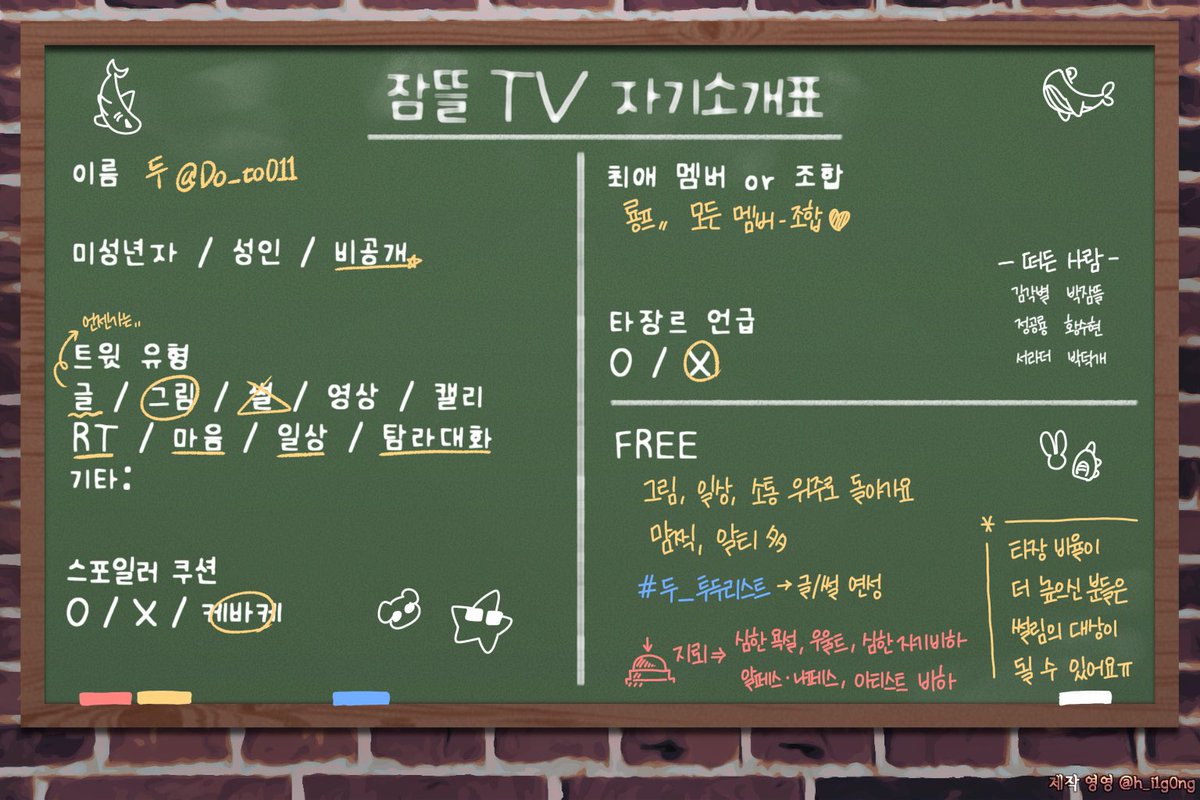 잠뜰 TV 자기소개표
이름 두 @Do_to011
미성년자 / 성인 / 비공개
언젠가는,,
트윗 유형
글 / 그림 / 썰 / 영상 / 캘리
RT / 마음 / 일상 / 탐라대화
기타:
스포일러 쿠션
O / X / 케바케
최애 멤버 or 조합
룡프,, 모든 멤버-조합♡
타장르 언급
O / X
- 떠든 사람 -
김각별 박잠뜰
정공룡 황수현
서라더 박덕개
FREE
그림, 일상, 소통 위주로 돌아가요
맘찍, 알티 多
#두_투두리스트 → 글/썰 연성
지뢰 ⇒ 심한 욕설, 우울트, 심한 자기비하
알페스·나페스, 아티스트 비하
* 타장 비율이
더 높으신 분들은
썰림의 대상이
될 수 있어요ㅠ
제작 영영 @h_i1g0ng